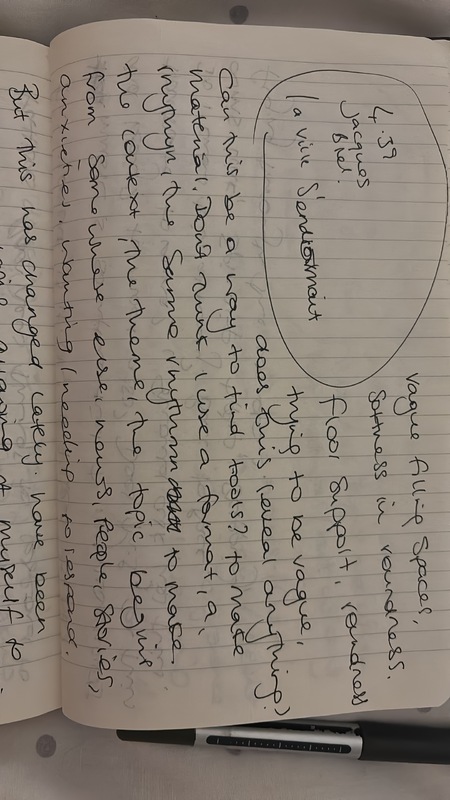 4.39
Jacques
Brel.
la ville s'endormait
vague filling spaces,
softness in roundness.
floor support, roundness
trying to be vague,
does this reveal anything?
Can this be a way to find tools? to make
material. Don't think I use a format, a
rhythm, the same rhythm to make.
the context, the theme, the topic begins
from somewhere else, news, people, stories,
anxieties, wanting / needing to respond.
But this has changed lately. have been
myself to